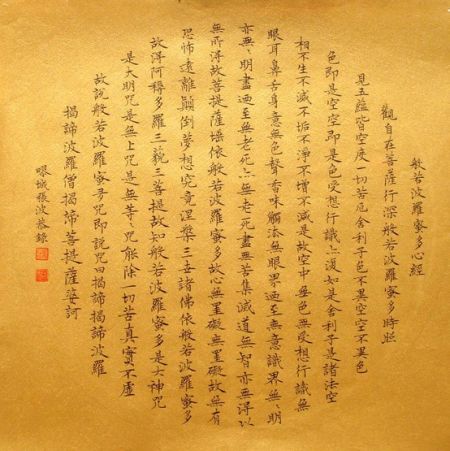 般若波羅蜜多心經
觀自在菩薩行深般若波羅蜜多時照
見五蘊皆空度一切苦厄舍利子色不異空空不異色
色即是空空即是色受想行識亦復如是舍利子是諸法空
相不生不滅不垢不淨不增不減是故空中無色無受想行識無
眼耳鼻舌身意無色聲香味觸法無眼界乃至無意識界無、明
亦無、明盡乃至無老死亦無老死盡無苦集滅道無智亦無得以
無所得故菩提薩埵依般若波羅蜜多故心無罣礙無罣礙故無有
恐怖遠離顛倒夢想究竟涅槃三世諸佛依般若波羅蜜多
故得阿耨多羅三藐三菩提故知般若波羅蜜多是大神咒
是大明咒是無上咒是無等、咒能除一切苦真實不虛
故說般若波羅蜜多咒即說咒曰揭諦揭諦波羅
揭諦波羅僧揭諦菩提薩婆訶
城張波恭錄